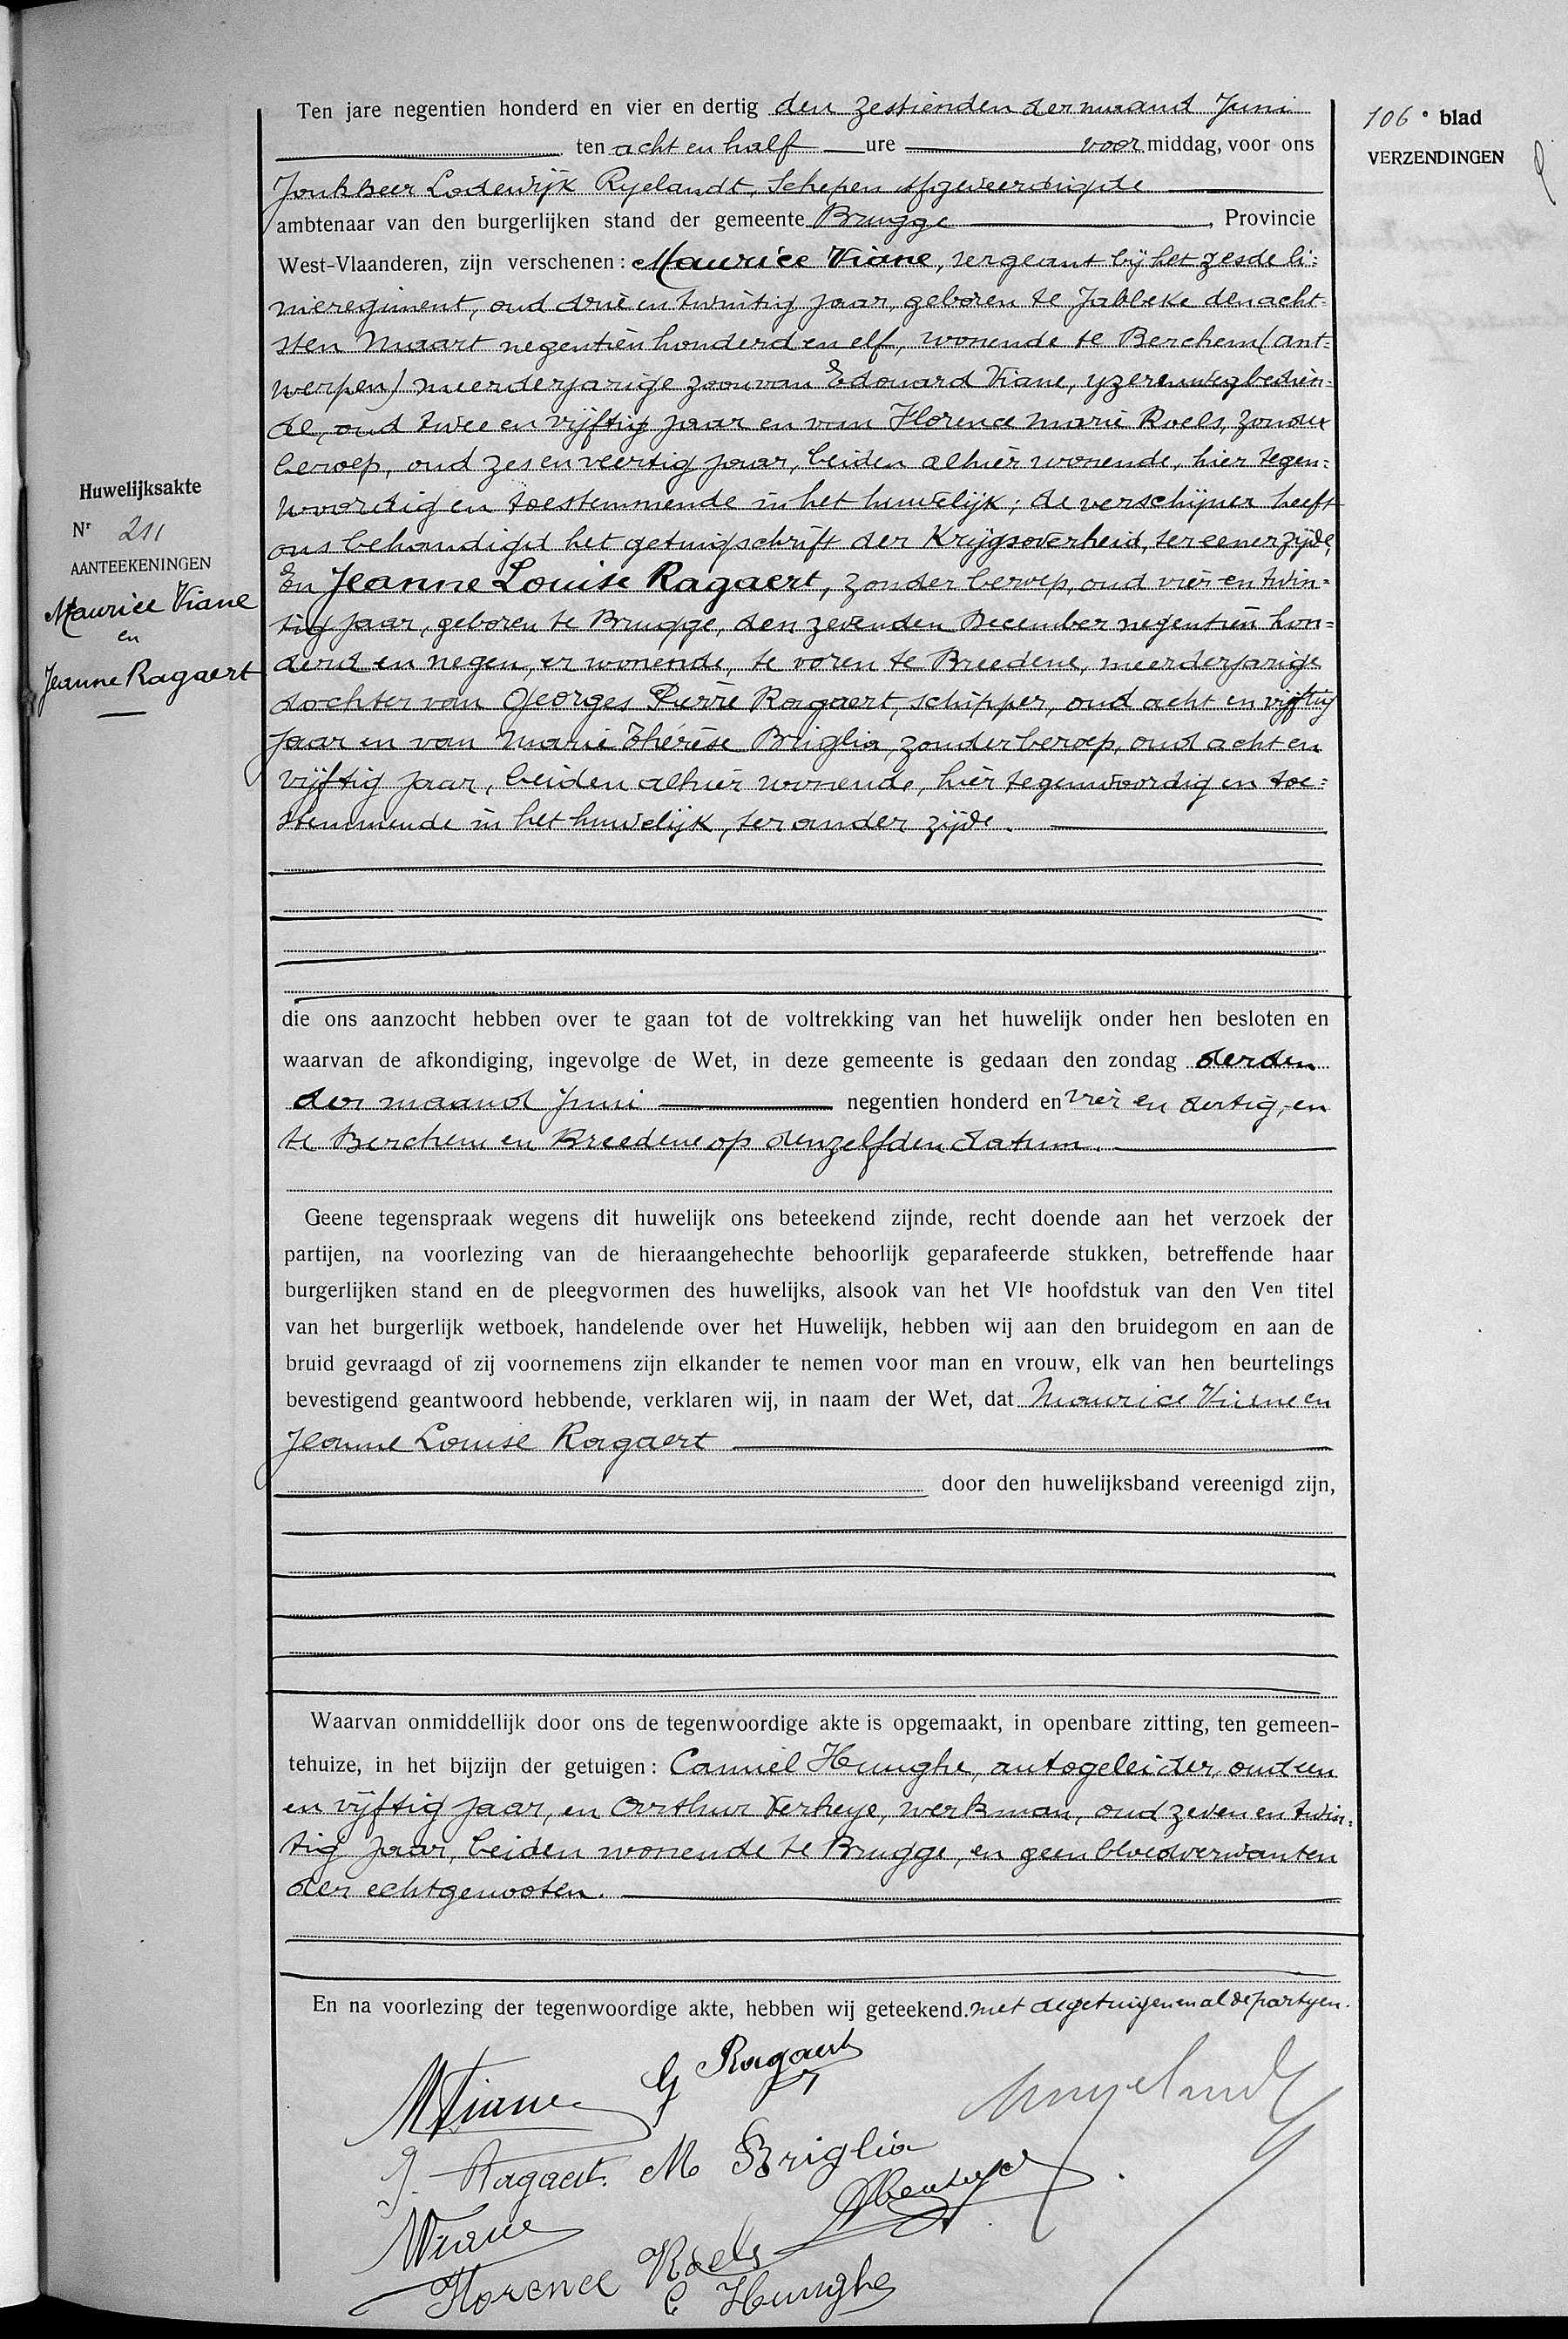 Ten jare negentien honderd en vier en dertig den zestienden der maand Juni
ten acht en half ure voor middag, voor ons
Jonkheer Lodewijk Ryelandt, Schepen Afgeveerdigde
ambtenaar van den burgerlijken stand der gemeente Brugge, Provincie
West-Vlaanderen, zijn verschenen: Maurice Viane, sergeant bij het zesde li=
nieregiment, oud drie en twintig jaar, geboren te Jabbeke den acht=
sten Maart negentien honderd en elf, wonende te Berchem (Ant=
werpen) meerderjarige zoon van Edouard Viane, yzerenwegbedien=
de, oud twee en vijftig jaar en van Florence Marie Roels, zonder
beroep, oud zes en veertig jaar, beiden alhier wonende, hier tegen=
woordig en toestemmende in het huwelijk; de verschijner heeft
ons behandigd het getuigschrift der Krijgsoverheid, ter eener zijde,
En Jeanne Louise Ragaert, zonder beroep, oud vier en twin=
tig jaar, geboren te Brugge, den zevenden December negentien hon=
derd en negen, er wonende, te voren te Breedene, meerderjarige
dochter van Georges Pierre Ragaert, schipper, oud acht en vijftig
jaar en van Marie Thérèse Briglia, zonder beroep, oud acht en
vijftig jaar, beiden alhier wonende, hier tegenwoordig en toe=
stemmende in het huwelijk, ter ander zijde.
106e blad
VERZENDINGEN
Huwelijksakte
Nr 211
AANTEEKENINGEN
Maurice Viane
en
Jeanne Ragaert
die ons aanzocht hebben over te gaan tot de voltrekking van het huwelijk onder hen besloten en
waarvan de afkondiging, ingevolge de Wet, in deze gemeente is gedaan den zondag derden
der maand Juni negentien honderd en vier en dertig, en
te Berchem en Breedene op denzelfden datum.
Geene tegenspraak wegens dit huwelijk ons beteekend zijnde, recht doende aan het verzoek der
partijen, na voorlezing van de hieraangehechte behoorlijk geparafeerde stukken, betreffende haar
burgerlijken stand en de pleegvormen des huwelijks, alsook van het VIe hoofdstuk van den Ven titel
van het burgerlijk wetboek, handelende over het Huwelijk, hebben wij aan den bruidegom en aan de
bruid gevraagd of zij voornemens zijn elkander te nemen voor man en vrouw, elk van hen beurtelings
bevestigend geantwoord hebbende, verklaren wij, in naam der Wet, dat Maurice Viane en
Jeanne Louise Ragaert
door den huwelijksband vereenigd zijn,
Waarvan onmiddellijk door ons de tegenwoordige akte is opgemaakt, in openbare zitting, ten gemeen-
tehuize, in het bijzijn der getuigen: Camiel Hunghe, autogeleider, oud een
en vijftig jaar, en Arthur Verheye, werkman, oud zeven en twin=
tig jaar, beiden wonende te Brugge, en geen bloedverwanten
der echtgenooten.
En na voorlezing der tegenwoordige akte, hebben wij geteekend. met de getuigen en al de partyen.
MViane G Ragaert
J. Ragaert. M Briglia
Viane
Florence Roels
C Hunghe